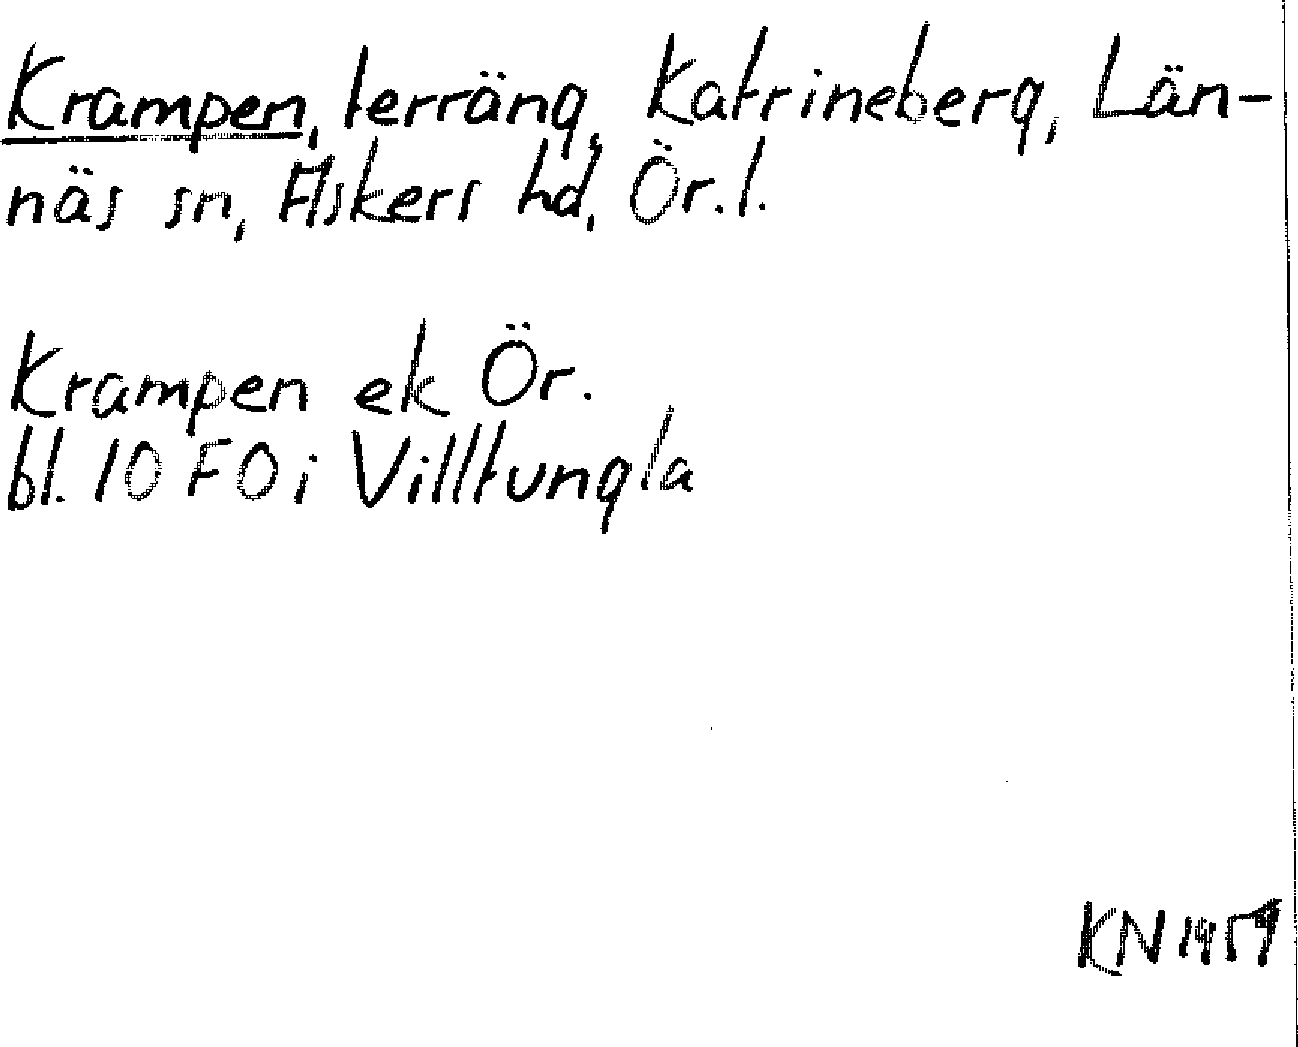 Krampen, terräng, Katrineberg, Län-
näs sn, Askers hd, Ör. l.
Krampen ek Ör.
bl. 10 F0i Villtungla
KN